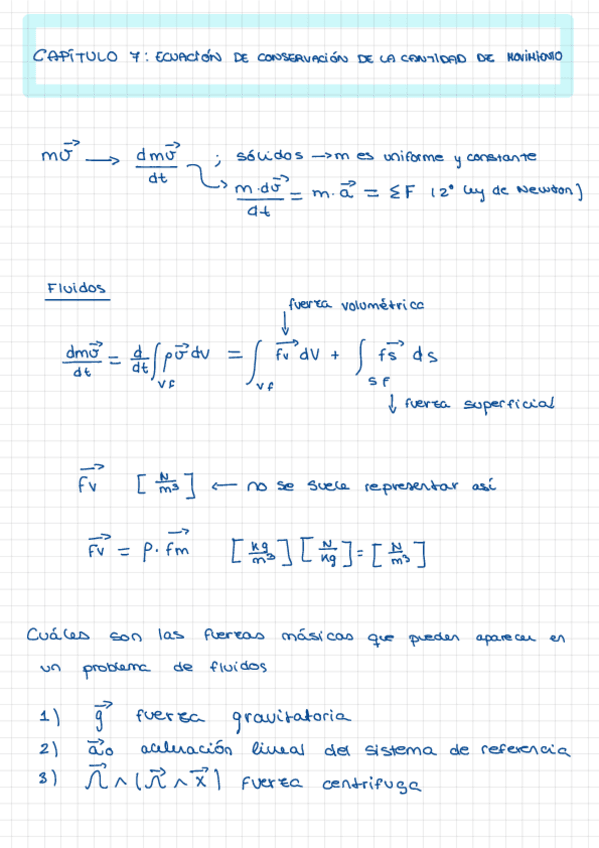 CAPÍTULO 7: ECUACIÓN DE CONSERVACIÓN DE LA CANTIDAD DE MOVIMIENTO
m\vec{v} → \frac{dm\vec{v}}{dt} ; sólidos → m es uniforme y constante
\frac{m·d\vec{v}}{dt} = m·\vec{a} = ΣF (2ª ley de Newton)
Fluidos
fuerza volumétrica
\frac{dm\vec{v}}{dt} = \frac{d}{dt} ∫_{Vf} ρ\vec{v} dV = ∫_{Vf} \vec{fv} dV + ∫_{Sf} \vec{fs} ds
↓ fuerza superficial
\vec{fv} [\frac{N}{m³}] ← no se suele representar así
\vec{fv} = ρ·\vec{fm} [\frac{kg}{m³}] [\frac{N}{kg}] = [\frac{N}{m³}]
Cuáles son las fuerzas másicas que pueden aparecer en
un problema de fluidos
1) \vec{g} fuerza gravitatoria
2) \vec{a}o aceleración lineal del sistema de referencia
3) \vec{Ω} ∧ (\vec{Ω} ∧ \vec{x}) fuerza centrifuga